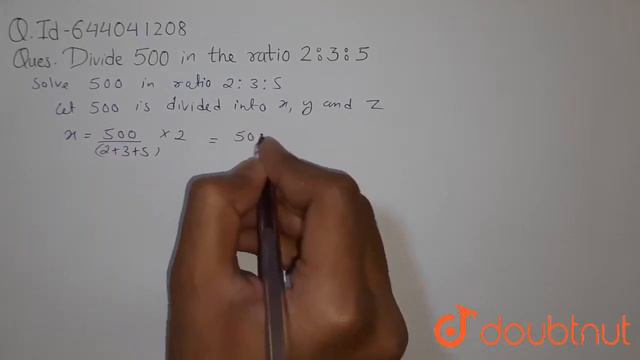 Q.Id-644041208
Ques. Divide 500 in the ratio 2:3:5
Solve 500 in ratio 2:3:5
Let 500 is divided into x, y and z
x = 500/(2+3+5) × 2 = 50
doubtnut